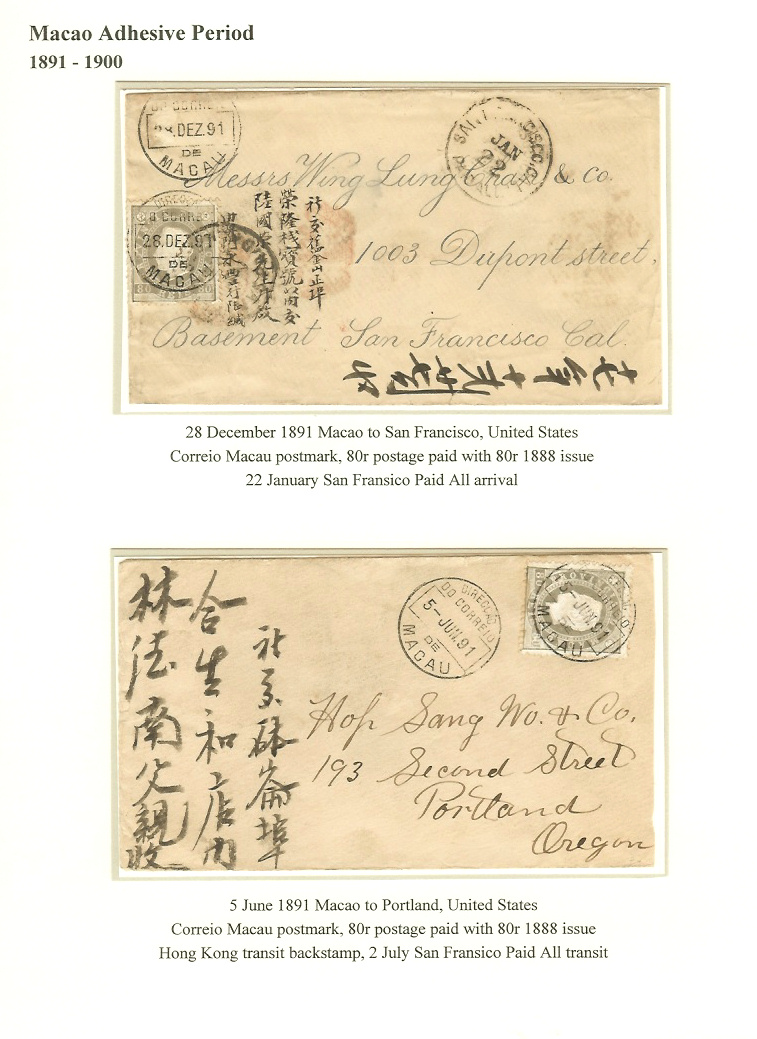 Macao Adhesive Period
1891 - 1900
DO CORREIO
28.DEZ.91
DE
MACAU
SAN FRANCISCO, CAL.
JAN
22
PAID ALL
Messrs Wing Lung Chan & Co.
1003 Dupont street,
Basement San Francisco Cal.
DIRECÇÃO
DO CORREIO
28.DEZ.91
DE
MACAU
80 REIS 80
祈交舊金山正埠
榮隆棧寶號收交
陸國 先生 啟
28 December 1891 Macao to San Francisco, United States
Correio Macau postmark, 80r postage paid with 80r 1888 issue
22 January San Fransico Paid All arrival
DIRECÇÃO
DO CORREIO
5-JUN.91
DE
MACAU
5-JUN.91
MACAU
祈至砵崙埠
合生和店內
林德南父親收
Hop Sang Wo. & Co.
193 Second Street
Portland
Oregon
5 June 1891 Macao to Portland, United States
Correio Macau postmark, 80r postage paid with 80r 1888 issue
Hong Kong transit backstamp, 2 July San Fransico Paid All transit